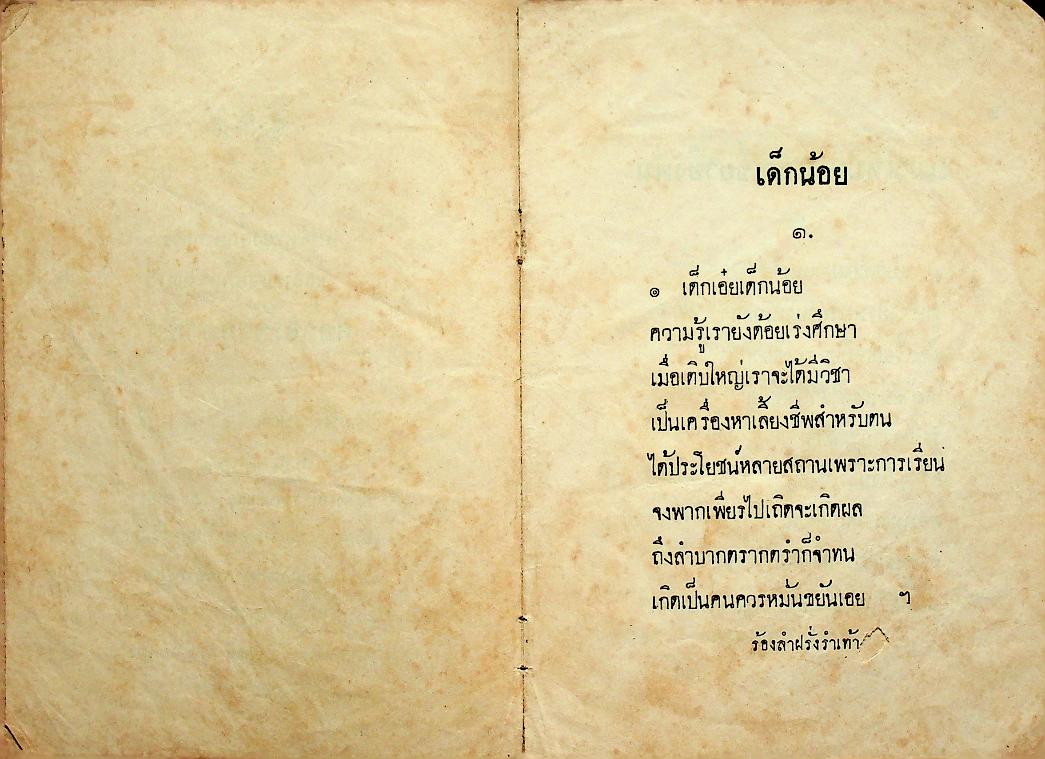 เด็กน้อย
๑.
๑ เด็กเอ๋ยเด็กน้อย
ความรู้เรายังด้อยเร่งศึกษา
เมื่อเติบใหญ่เราจะได้มีวิชา
เป็นเครื่องหาเลี้ยงชีพสำหรับตน
ได้ประโยชน์หลายสถานเพราะการเรียน
จงพากเพียรไปเถิดจะเกิดผล
ถึงลำบากตรากตรำก็จำทน
เกิดเป็นคนควรหมั่นขยันเอย ฯ
ร้องลำฝรั่งรำเท้า